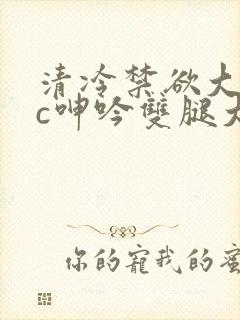 清冷禁欲大
c呻吟雙腿大
你的寵我的蜜